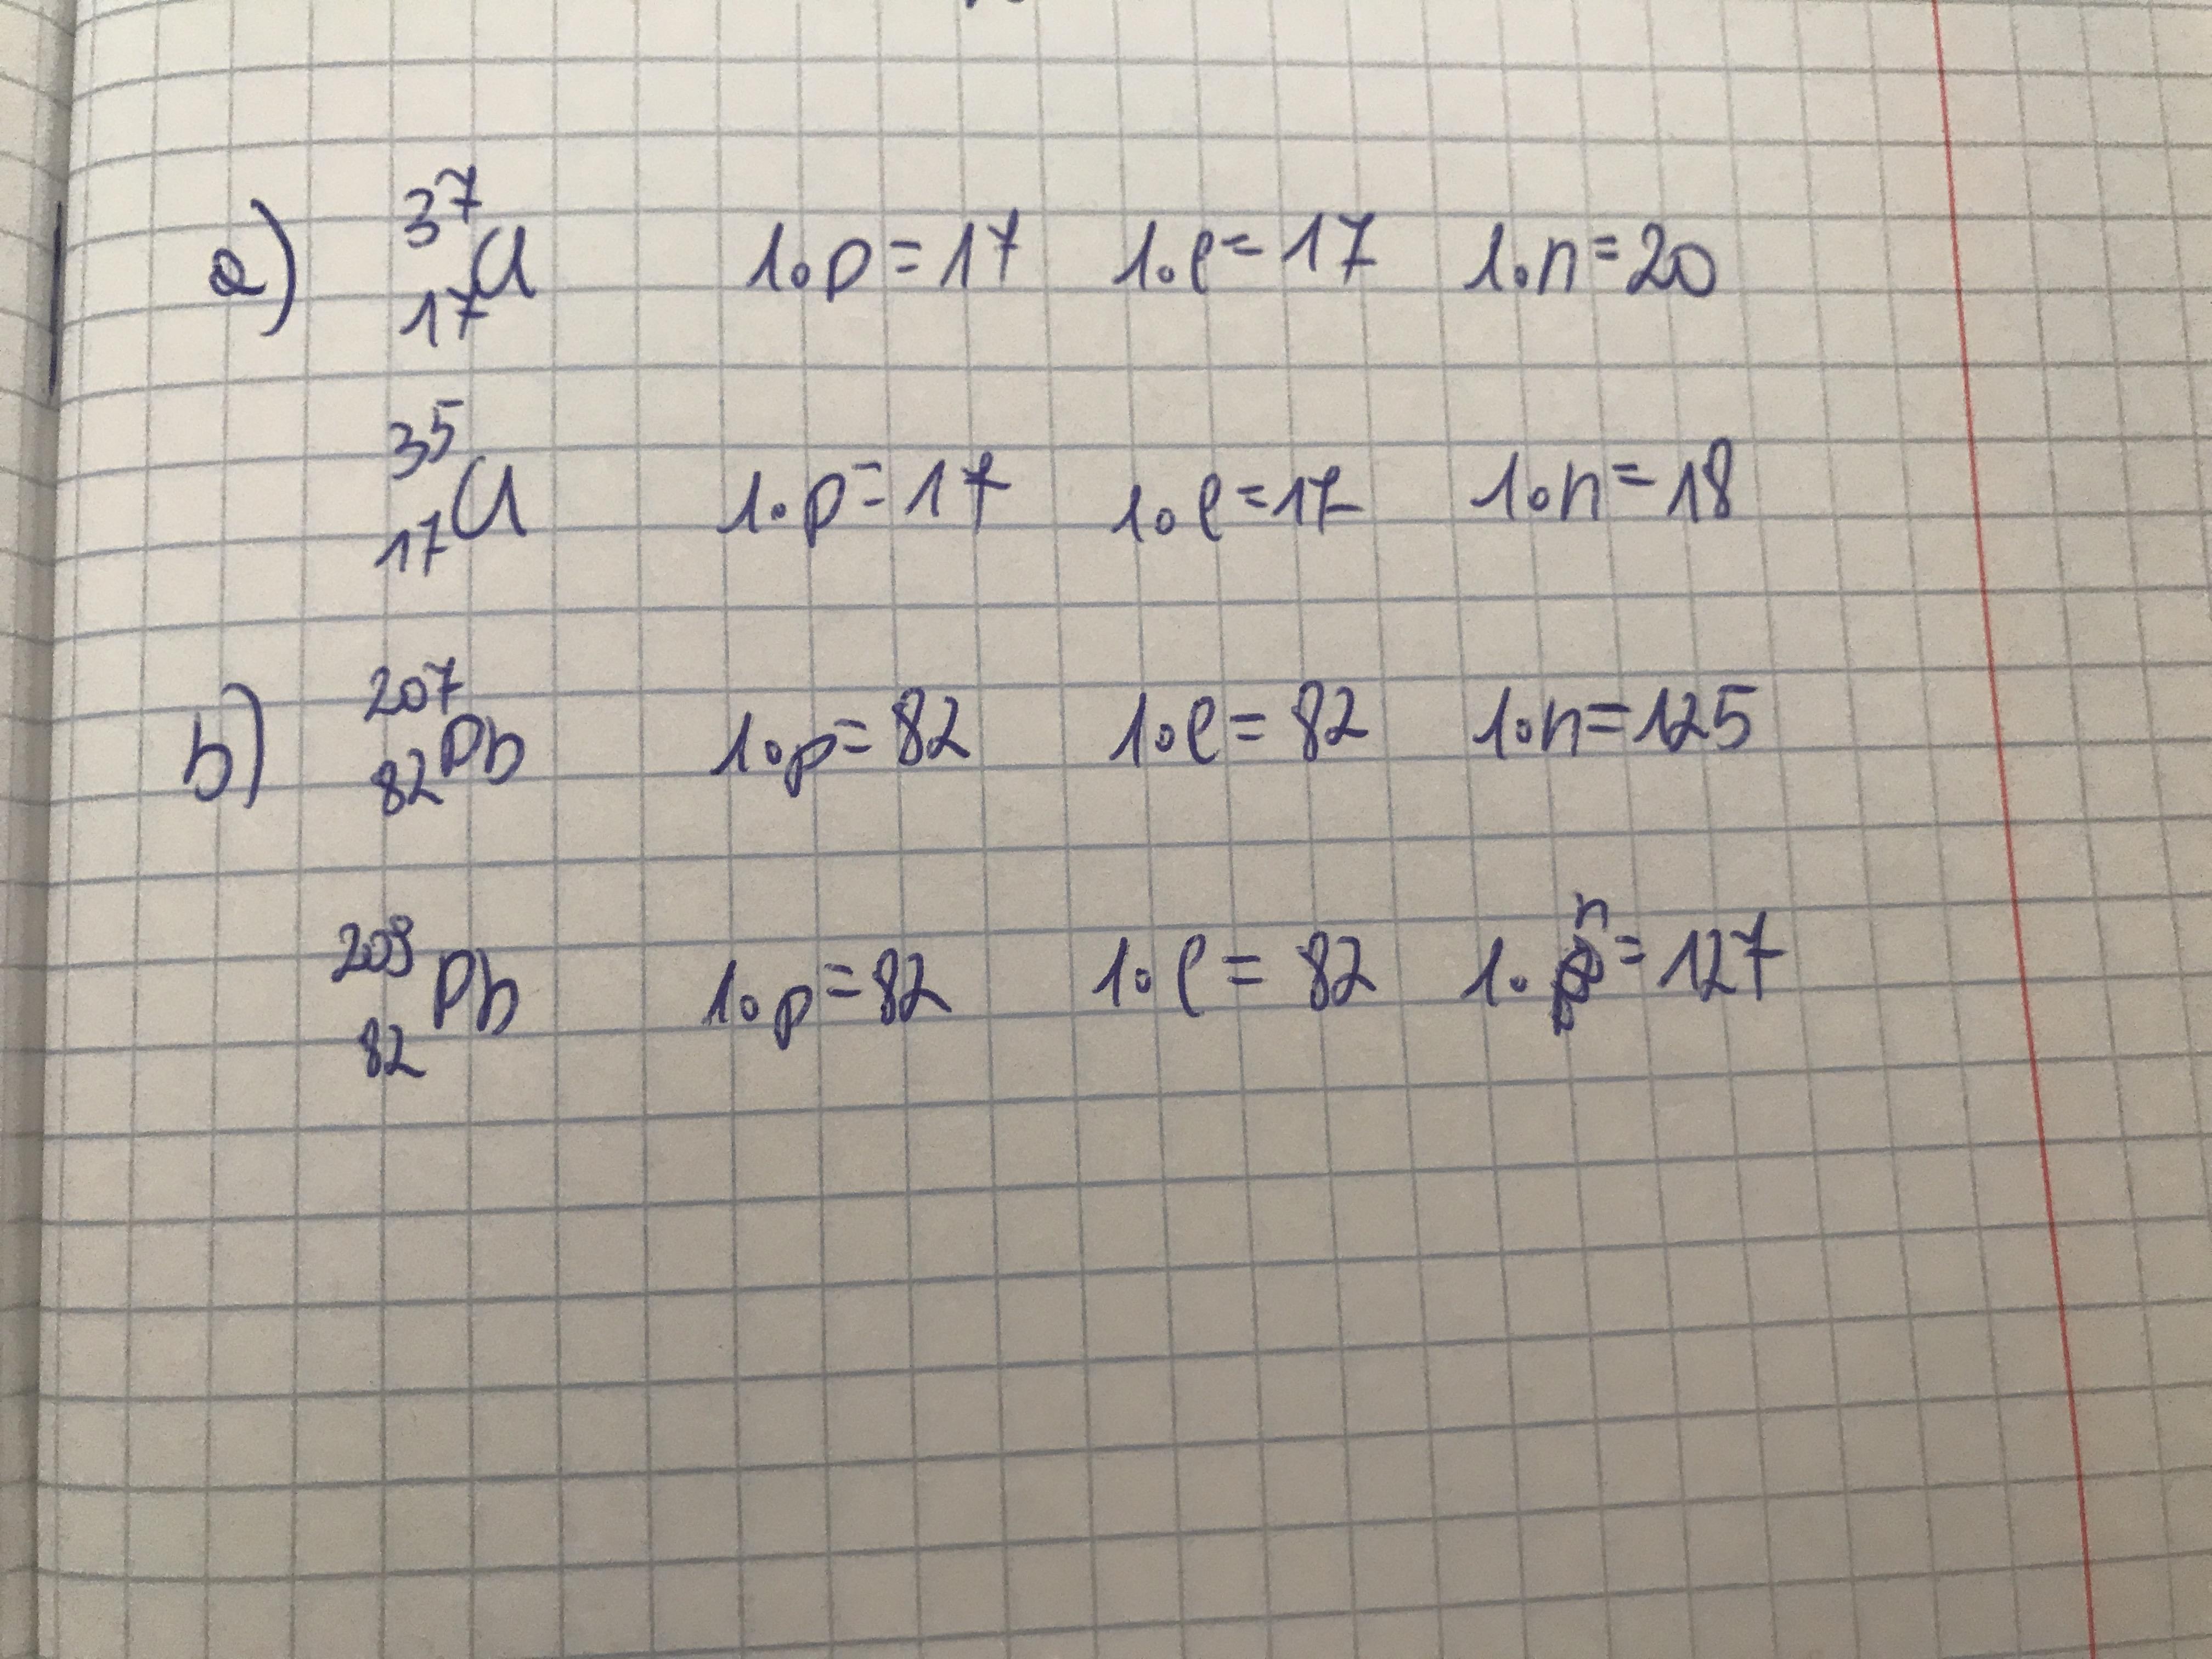 a) ³⁷₁₇Cl l.p=17 l.e=17 l.n=20
³⁵₁₇Cl l.p=17 l.e=17 l.n=18
b) ²⁰⁷₈₂Pb l.p=82 l.e=82 l.n=125
²⁰⁹₈₂Pb l.p=82 l.e=82 l.n=127